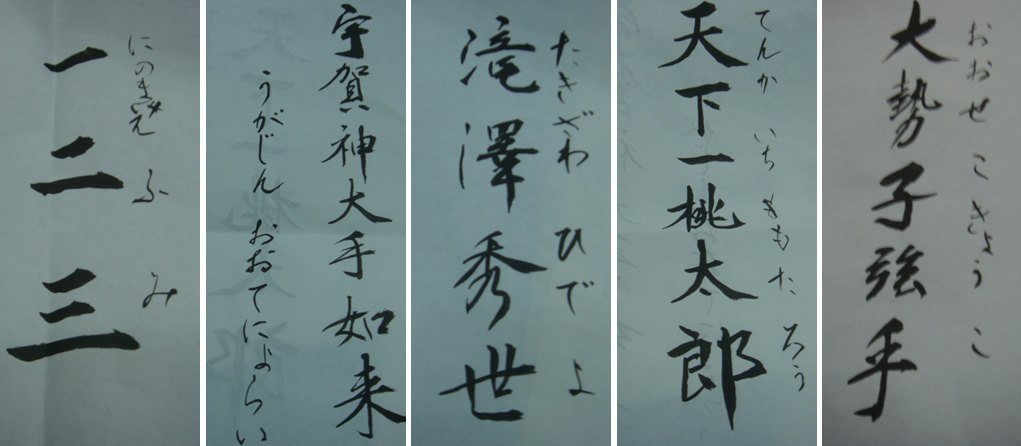 一二三
にのまえ ふ み
宇賀神大手如来
うがじん おおてにょらい
滝澤秀世
たきざわ ひでよ
天下一桃太郎
てんか いち ももたろう
大勢子強乎
おおせ こ きょう こ